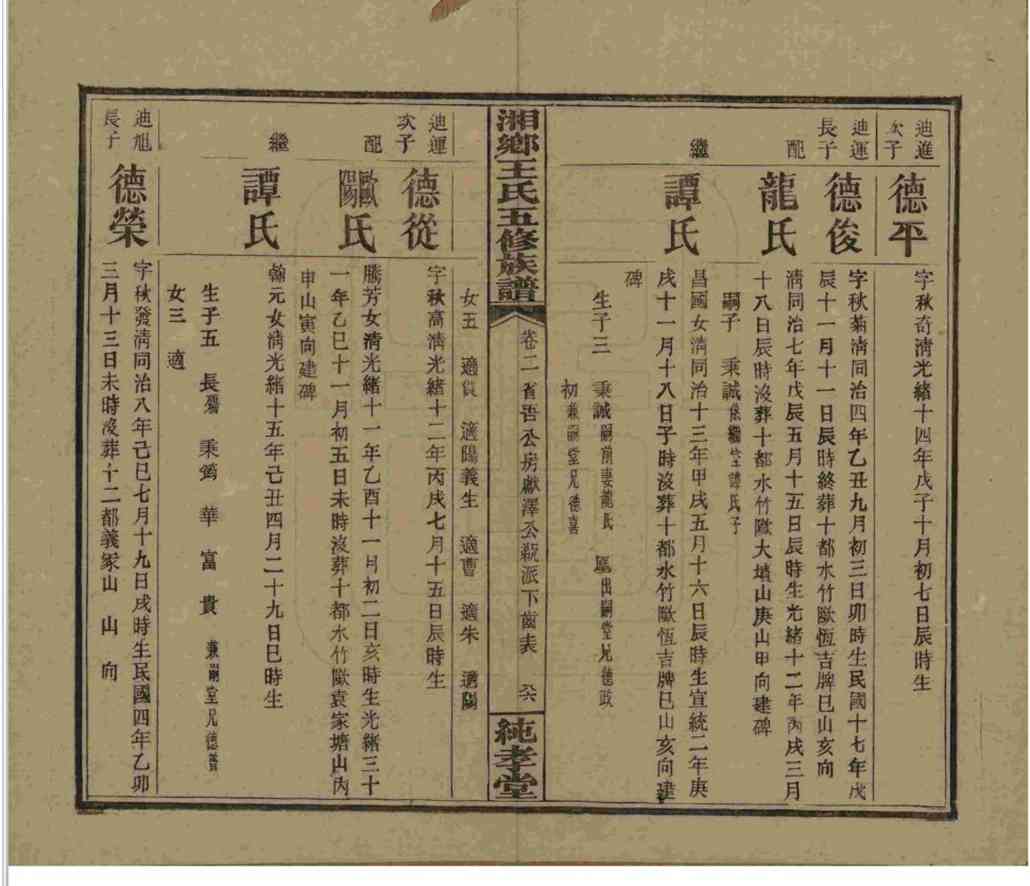 迪進次子
德平
字秋奇淸光緒十四年戊子十月初七日辰時生
迪運長子
德俊
字秋菊淸同治四年乙丑九月初三日卯時生民國十七年戊
辰十一月十一日辰時終葬十都水竹歐恆吉牌巳山亥向
配
龍氏
淸同治七年戊辰五月十五日辰時生光緒十二年丙戌三月
十八日辰時沒葬十都水竹歐大塘山庚山甲向建碑
嗣子 秉誠係繼室譚氏子
繼
譚氏
昌國女淸同治十三年甲戌五月十六日辰時生宣統二年庚
戌十一月十八日子時沒葬十都水竹歐恆吉牌巳山亥向建
碑
生子三 秉誠嗣前妻龍氏 出嗣堂兄德政
初兼嗣堂兄德喜
湘鄉王氏五修族譜
卷二 省吾公房獻澤公 派下齒表
純孝堂
女五 適 適陽義生 適曹 適朱 適陽
迪運次子
德從
字秋高淸光緒十二年丙戌七月十五日辰時生
配
歐陽氏
騰芳女淸光緒十一年乙酉十一月初二日亥時生光緒三十
一年乙巳十一月初五日未時沒葬十都水竹歐袁家塘山丙
申山寅向建碑
繼
譚氏
翰元女淸光緒十五年己丑四月二十九日巳時生
生子五 長殤 秉筠 華 富 貴兼嗣堂兄德
女三 適
迪旭長子
德榮
字秋發淸同治八年己巳七月十九日戌時生民國四年乙卯
三月十三日未時沒葬十二都義冢山 山 向